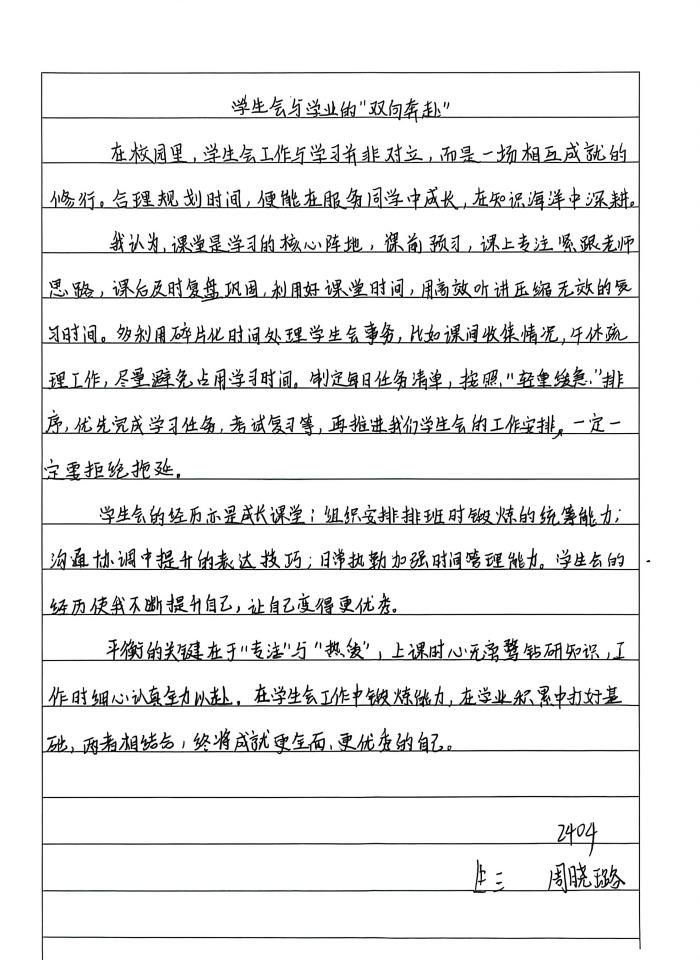 学生会与学业的"双向奔赴"
在校园里，学生会工作与学习并非对立，而是一场相互成就的
修行。合理规划时间，便能在服务同学中成长，在知识海洋中深耕。
我认为，课堂是学习的核心阵地，课前预习，课上专注紧跟老师
思路，课后及时复盘巩固，利用好课堂时间，用高效听讲压缩无效的复
习时间。多利用碎片化时间处理学生会事务，比如课间收集情况，午休疏
理工作，尽量避免占用学习时间。制定每日任务清单，按照"轻重缓急"排
序，优先完成学习任务，考试复习等，再推进我们学生会的工作安排。一定一
定要拒绝拖延。
学生会的经历亦是成长课堂；组织安排排班时锻炼的统筹能力；
沟通协调中提升的表达技巧；日常执勤加强时间管理能力。学生会的
经历使我不断提升自己，让自己变得更优秀。
平衡的关键在于"专注"与"热爱"，上课时心无旁骛钻研知识，工
作时细心认真全力以赴。在学生会工作中锻炼能力，在学业积累中打好基
础，两者相结合，终将成就更全面、更优秀的自己。
2404
生三 周晓璐